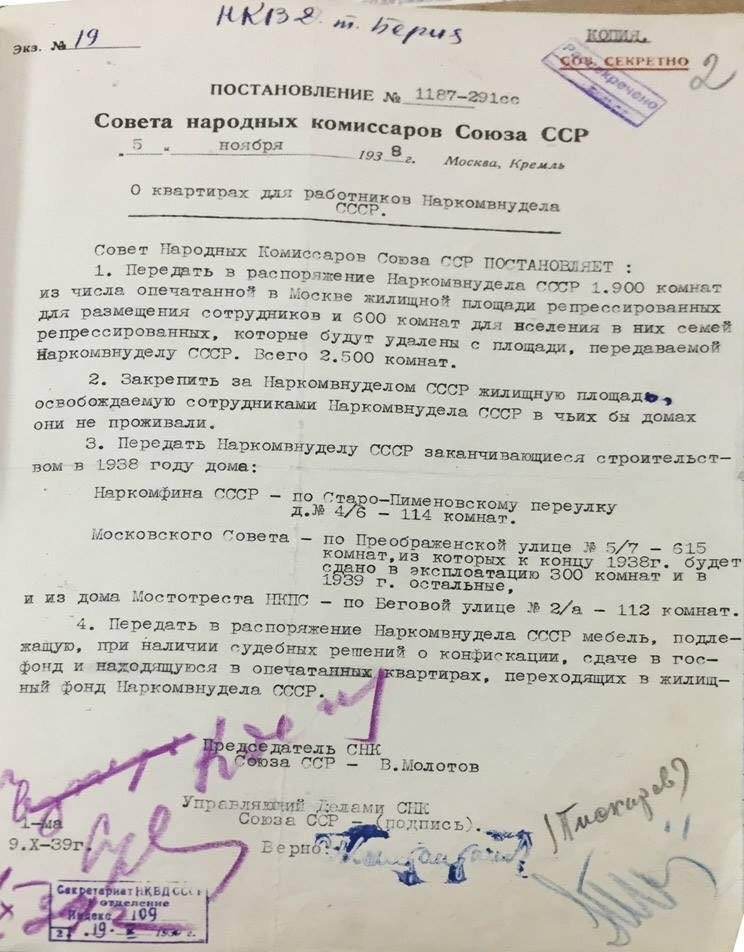 НКВД т. Берия
Экз. № 19
КОПИЯ.
СОВ. СЕКРЕТНО
2
Рассекречено
ПОСТАНОВЛЕНИЕ № 1187-291сс
Совета народных комиссаров Союза ССР
„ 5 “ ноября 1938 г. Москва, Кремль
О квартирах для работников Наркомвнудела
СССР.
Совет Народных Комиссаров Союза ССР ПОСТАНОВЛЯЕТ :
1. Передать в распоряжение Наркомвнудела СССР 1.900 комнат
из числа опечатанной в Москве жилищной площади репрессированных
для размещения сотрудников и 600 комнат для вселения в них семей
репрессированных, которые будут удалены с площади, передаваемой
Наркомвнуделу СССР. Всего 2.500 комнат.
2. Закрепить за Наркомвнуделом СССР жилищную площадь,
освобождаемую сотрудниками Наркомвнудела СССР в чьих бы домах
они не проживали.
3. Передать Наркомвнуделу СССР заканчивающиеся строительст-
вом в 1938 году дома:
Наркомфина СССР – по Старо-Пименовскому переулку
д.№ 4/6 – 114 комнат.
Московского Совета – по Преображенской улице № 5/7 – 615
комнат,из которых к концу 1938г. будет
сдано в эксплоатацию 300 комнат и в
1939 г. остальные,
и из дома Мостотреста НКПС – по Беговой улице № 2/а – 112 комнат.
4. Передать в распоряжение Наркомвнудела СССР мебель, подле-
жащую, при наличии судебных решений о конфискации, сдаче в гос-
фонд и находящуюся в опечатанных квартирах, переходящих в жилищ-
ный фонд Наркомвнудела СССР.
Председатель СНК
Союза ССР – В.Молотов
Управляющий Делами СНК
Союза ССР – (подпись).
1-ма
9.X-39г.
Верно:
Секретариат НКВД СССР
отделение
Индекс 109
19